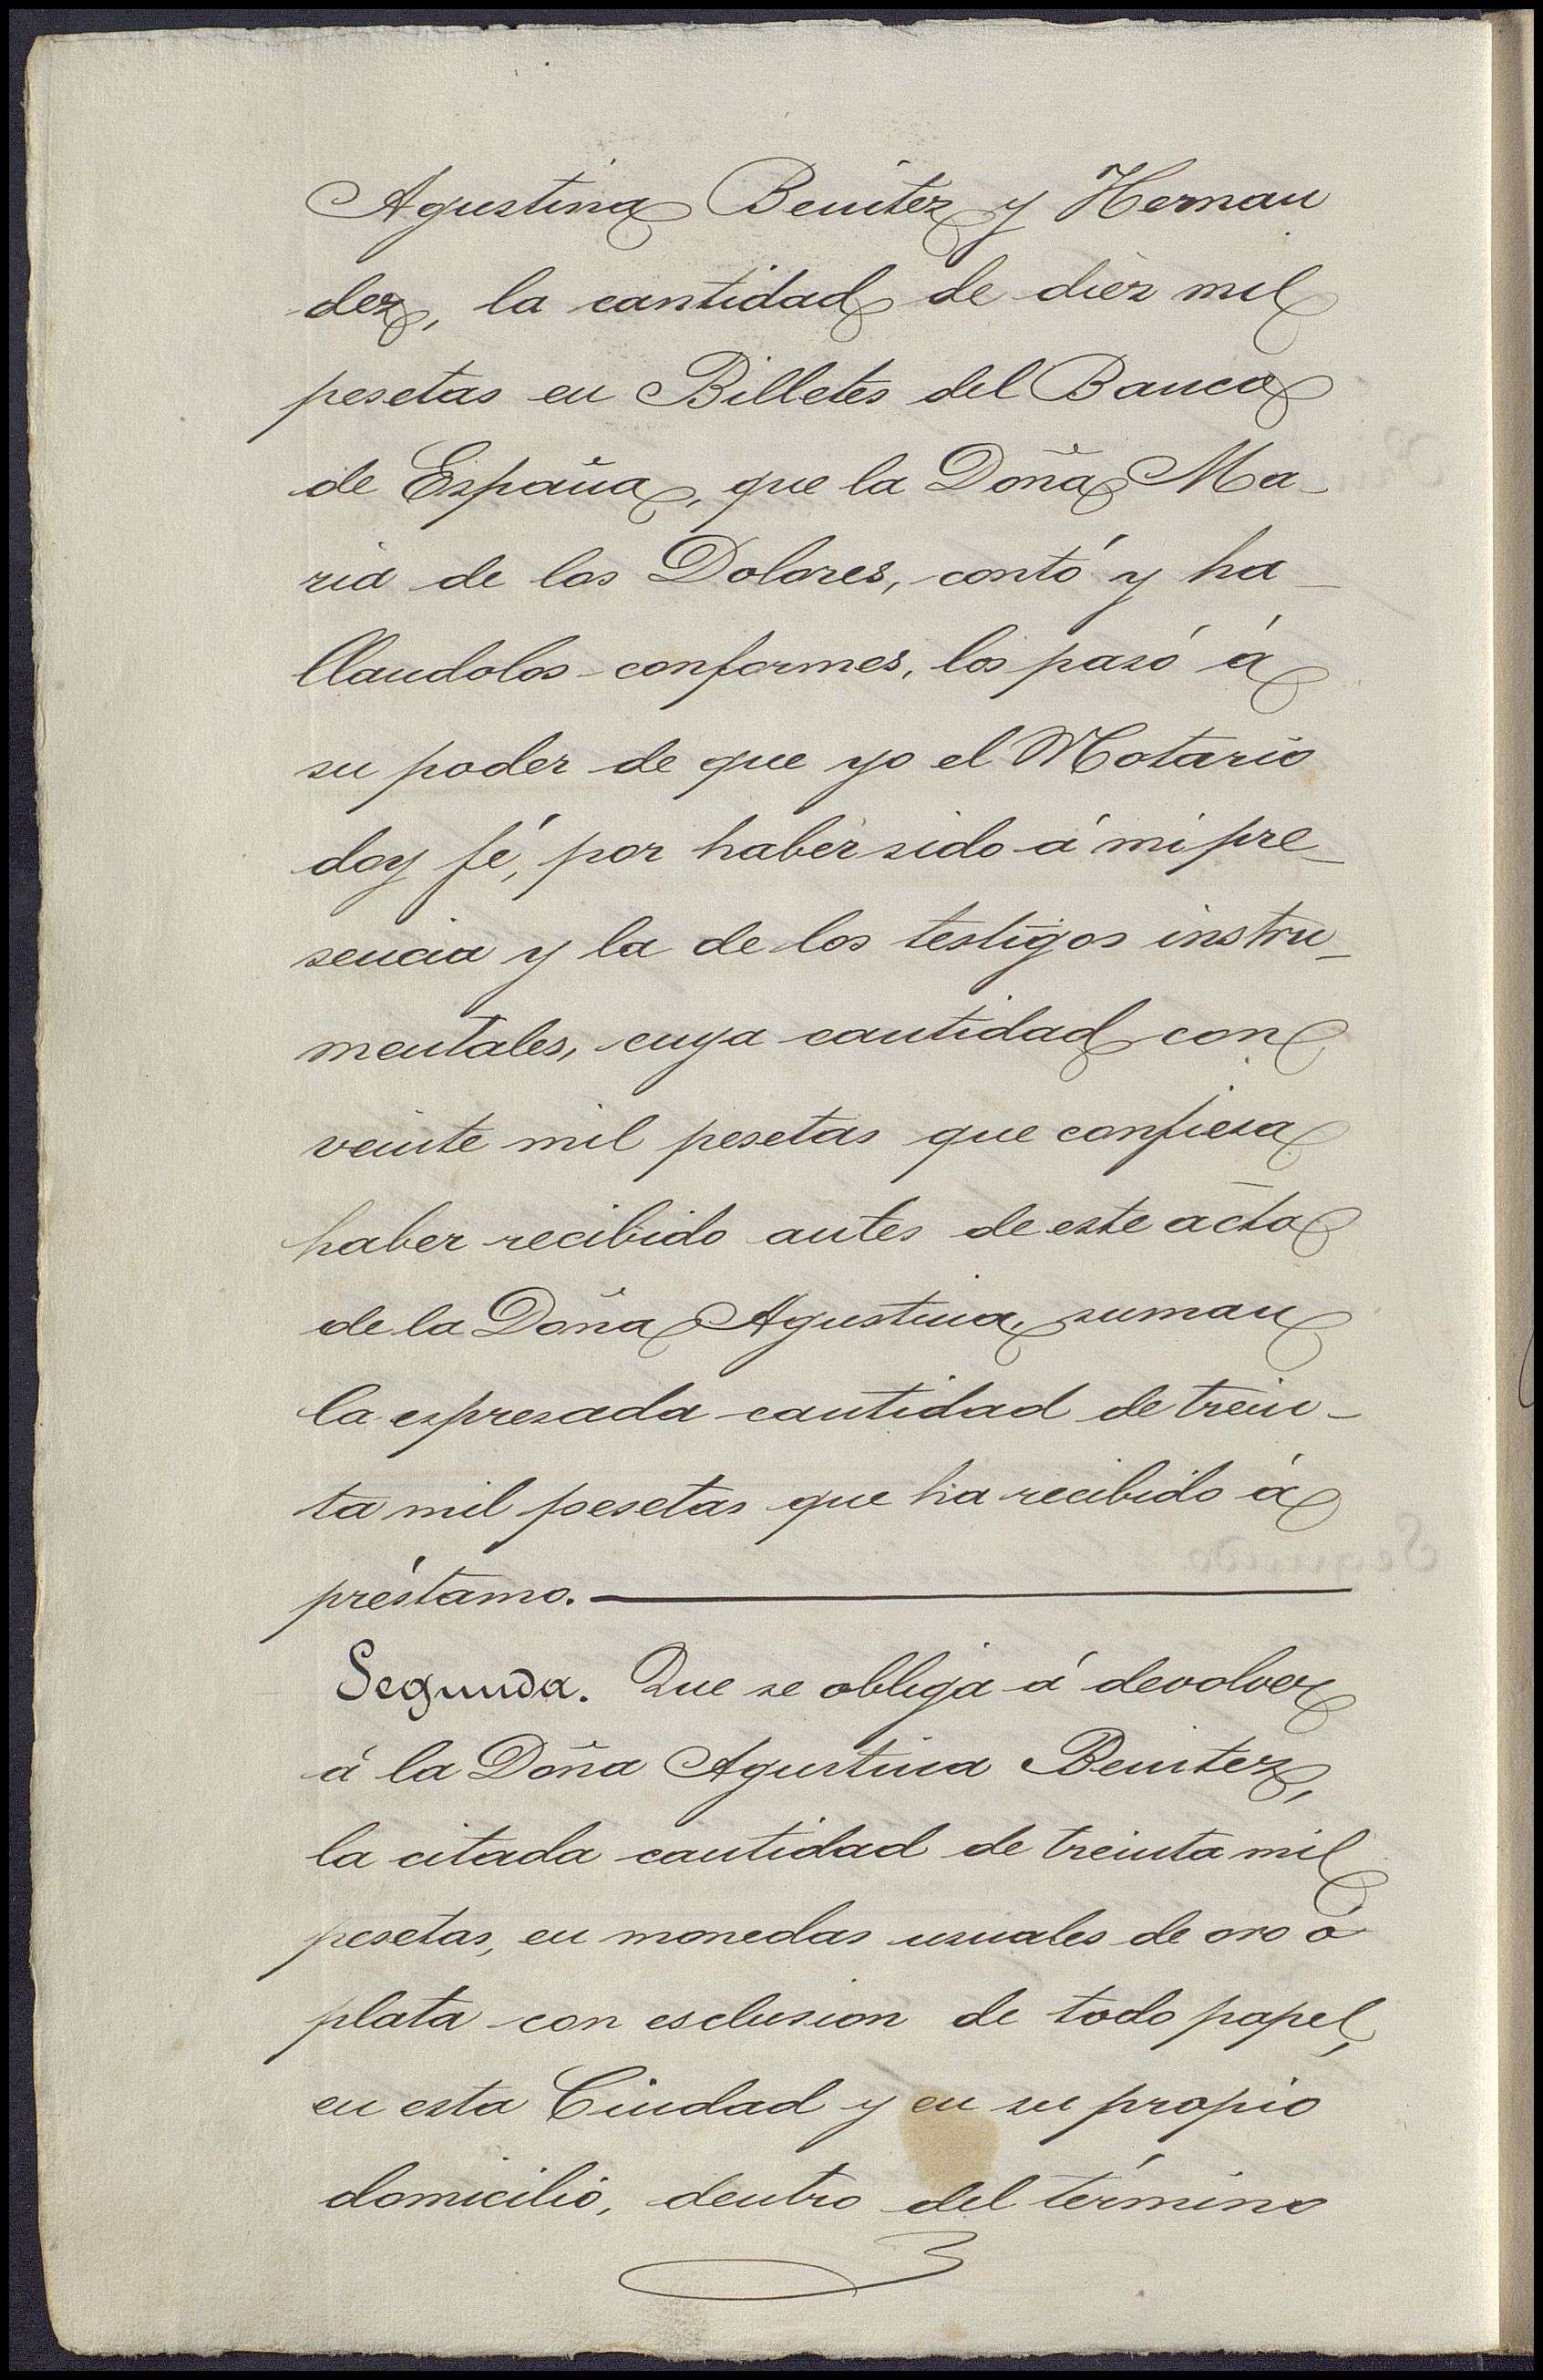 Agustina Benitez y Hernan
dez, la cantidad de diez mil
pesetas en Billetes del Banco
de España, que la Doña Ma-
ria de los Dolores, contó y ha-
llandolos conformes, los pasó á
su poder de que yo el Notario
doy fé, por haber sido á mi pre-
sencia y la de los testigos instru-
mentales, cuya cantidad con
veinte mil pesetas que confiesa
haber recibido antes de este acto
de la Doña Agustina, suman
la espresada cantidad de trein-
ta mil pesetas que ha recibido á
préstamo.
Segunda. Que se obliga á devolver
á la Doña Agustina Benitez,
la citada cantidad de treinta mil
pesetas, en monedas usuales de oro ó
plata con esclusion de todo papel,
en esta Ciudad y en su propio
domicilio, dentro del término